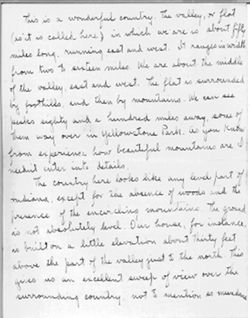 This is a wonderful country. The valley, or flat
(as it is called here) in which we are is about fifty
miles long, running east and west. It ranges in width
from two to sixteen miles. We are about the middle
of the valley, east and west. The flat is surrounded
by foothills, and then by mountains. We can see
peaks eighty and a hundred miles away, some of
them way over in Yellowstone Park. As you know
from experience how beautiful mountains are I
needn't enter into details.
The country here looks like any level part of
Indiana, except for the absence of woods and the
presence of the encircling mountains. The ground
is not absolutely level. Our house, for instance,
is built on a little elevation about thirty feet
above the part of the valley just to the north. This
gives us an excellent sweep of view over the
surrounding country, not to mention as